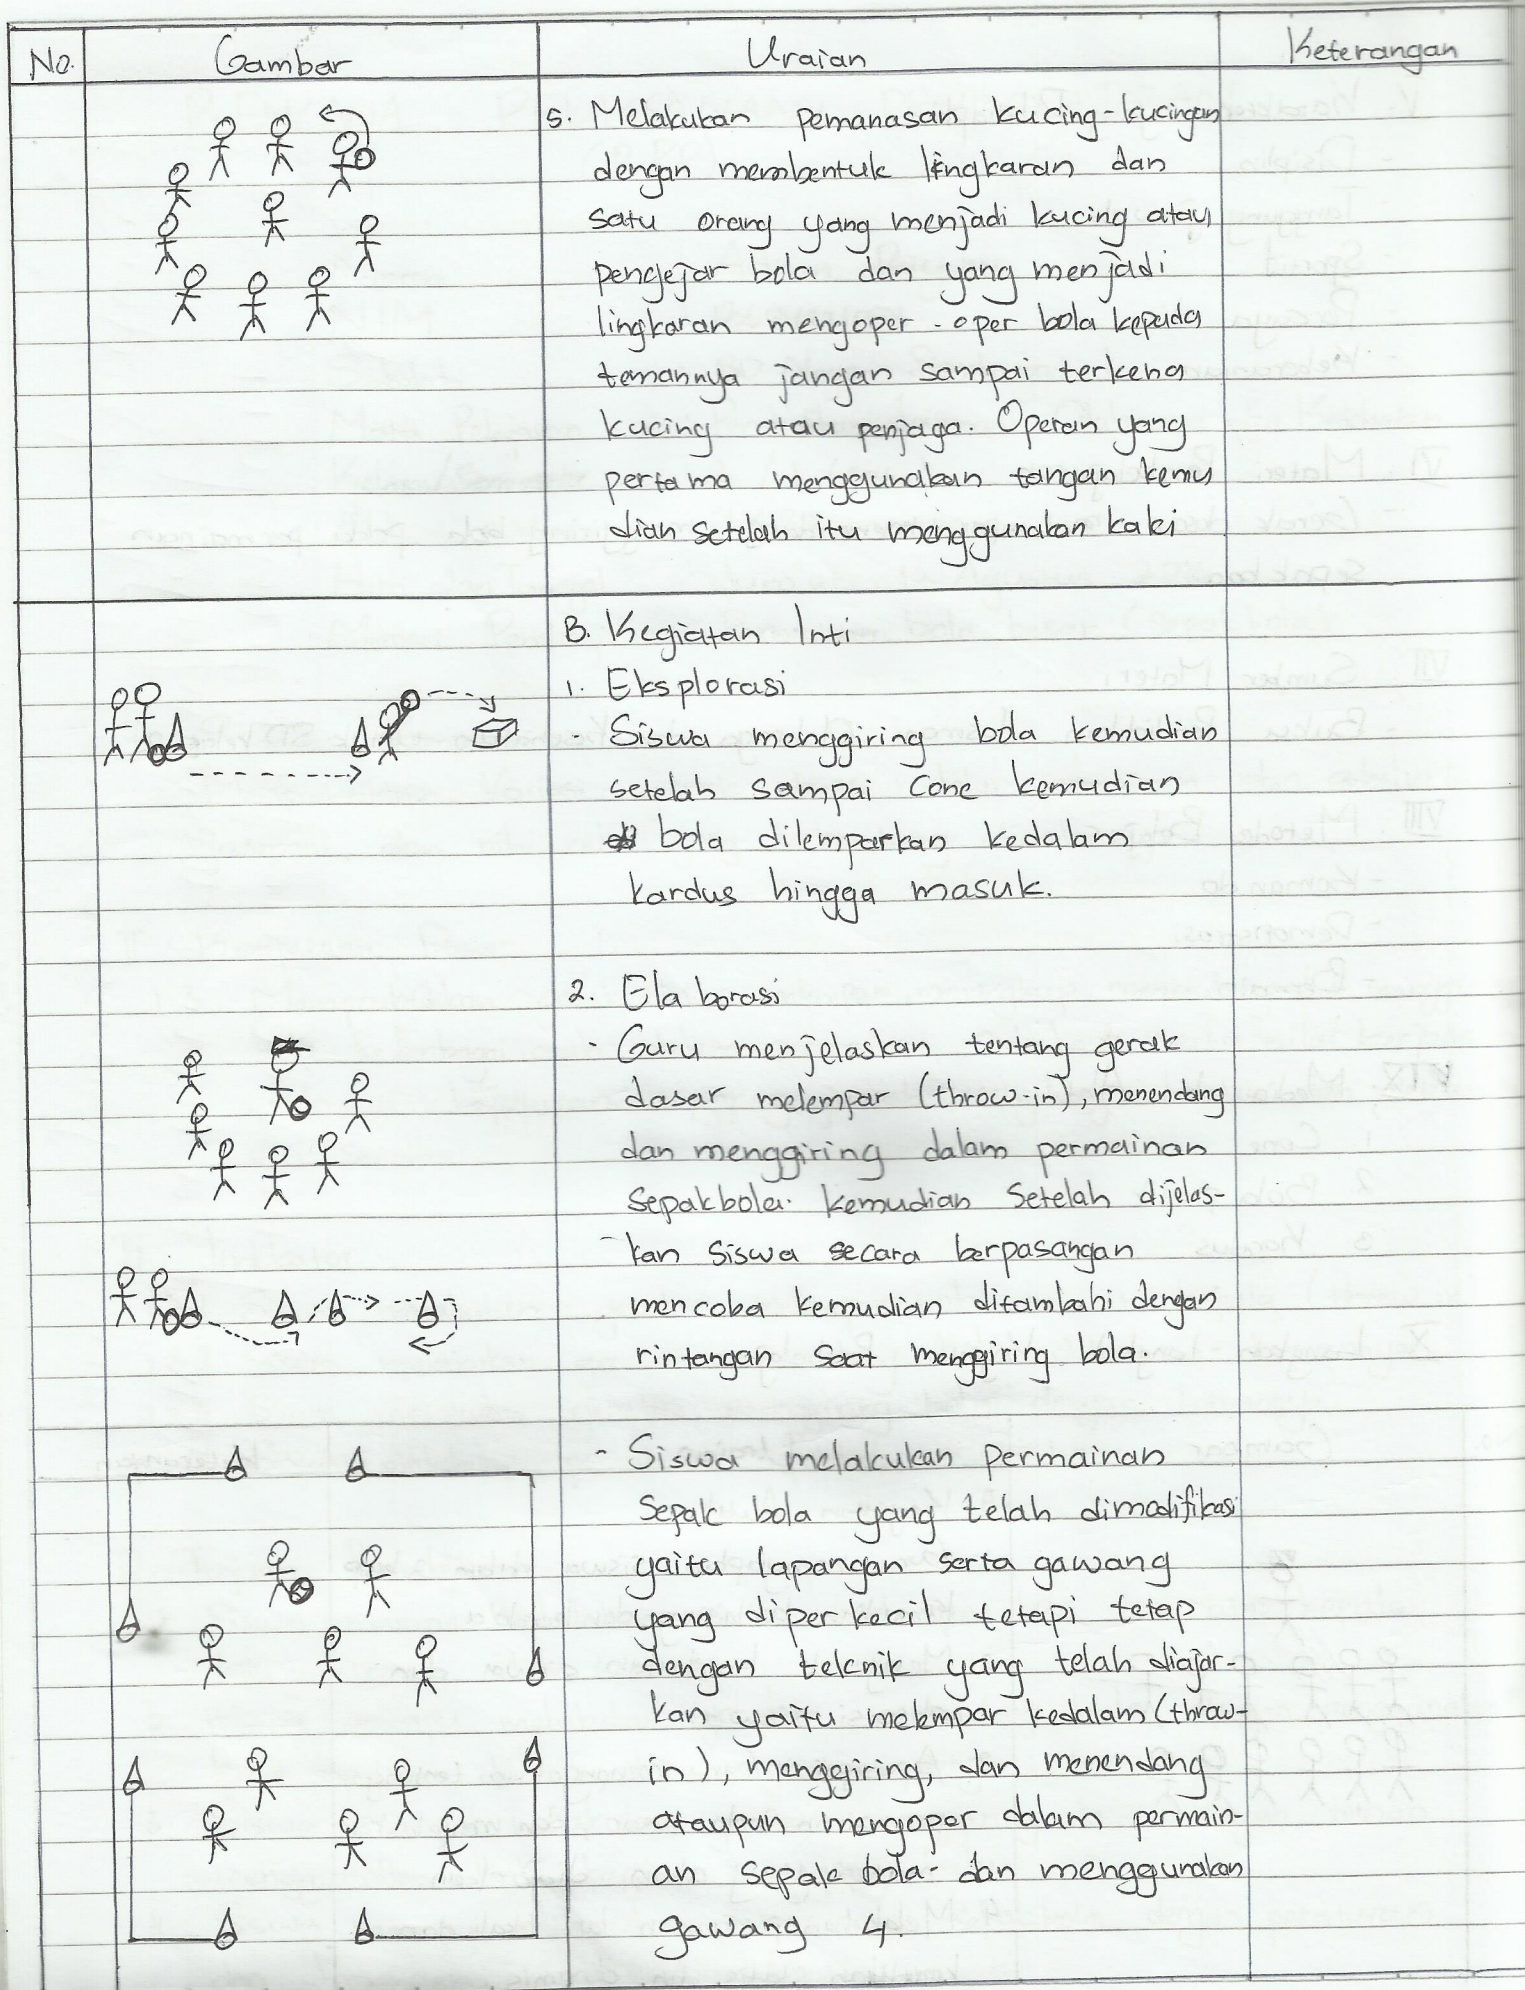 No. Gambar Uraian Keterangan
5. Melakukan pemanasan kucing-kucingan
dengan membentuk lingkaran dan
satu orang yang menjadi kucing atau
pengejar bola dan yang menjadi
lingkaran mengoper-oper bola kepada
temannya jangan sampai terkena
kucing atau penjaga. Operan yang
pertama menggunakan tangan kemu
dian setelah itu menggunakan kaki
B. Kegiatan Inti
1. Eksplorasi
- Siswa menggiring bola kemudian
setelah sampai Cone kemudian
bola dilemparkan kedalam
kardus hingga masuk.
2. Elaborasi
- Guru menjelaskan tentang gerak
dasar melempar (throw-in), menendang
dan menggiring dalam permainan
Sepakbola. Kemudian Setelah dijelas-
kan Siswa secara berpasangan
mencoba kemudian ditambahi dengan
rintangan saat menggiring bola.
- Siswa melakukan permainan
Sepak bola yang telah dimodifikasi
yaitu lapangan serta gawang
yang diperkecil tetapi tetap
dengan teknik yang telah diajar-
kan yaitu melempar kedalam (throw-
in), menggiring, dan menendang
ataupun mengoper dalam permain-
an sepak bola- dan menggunakan
gawang 4.